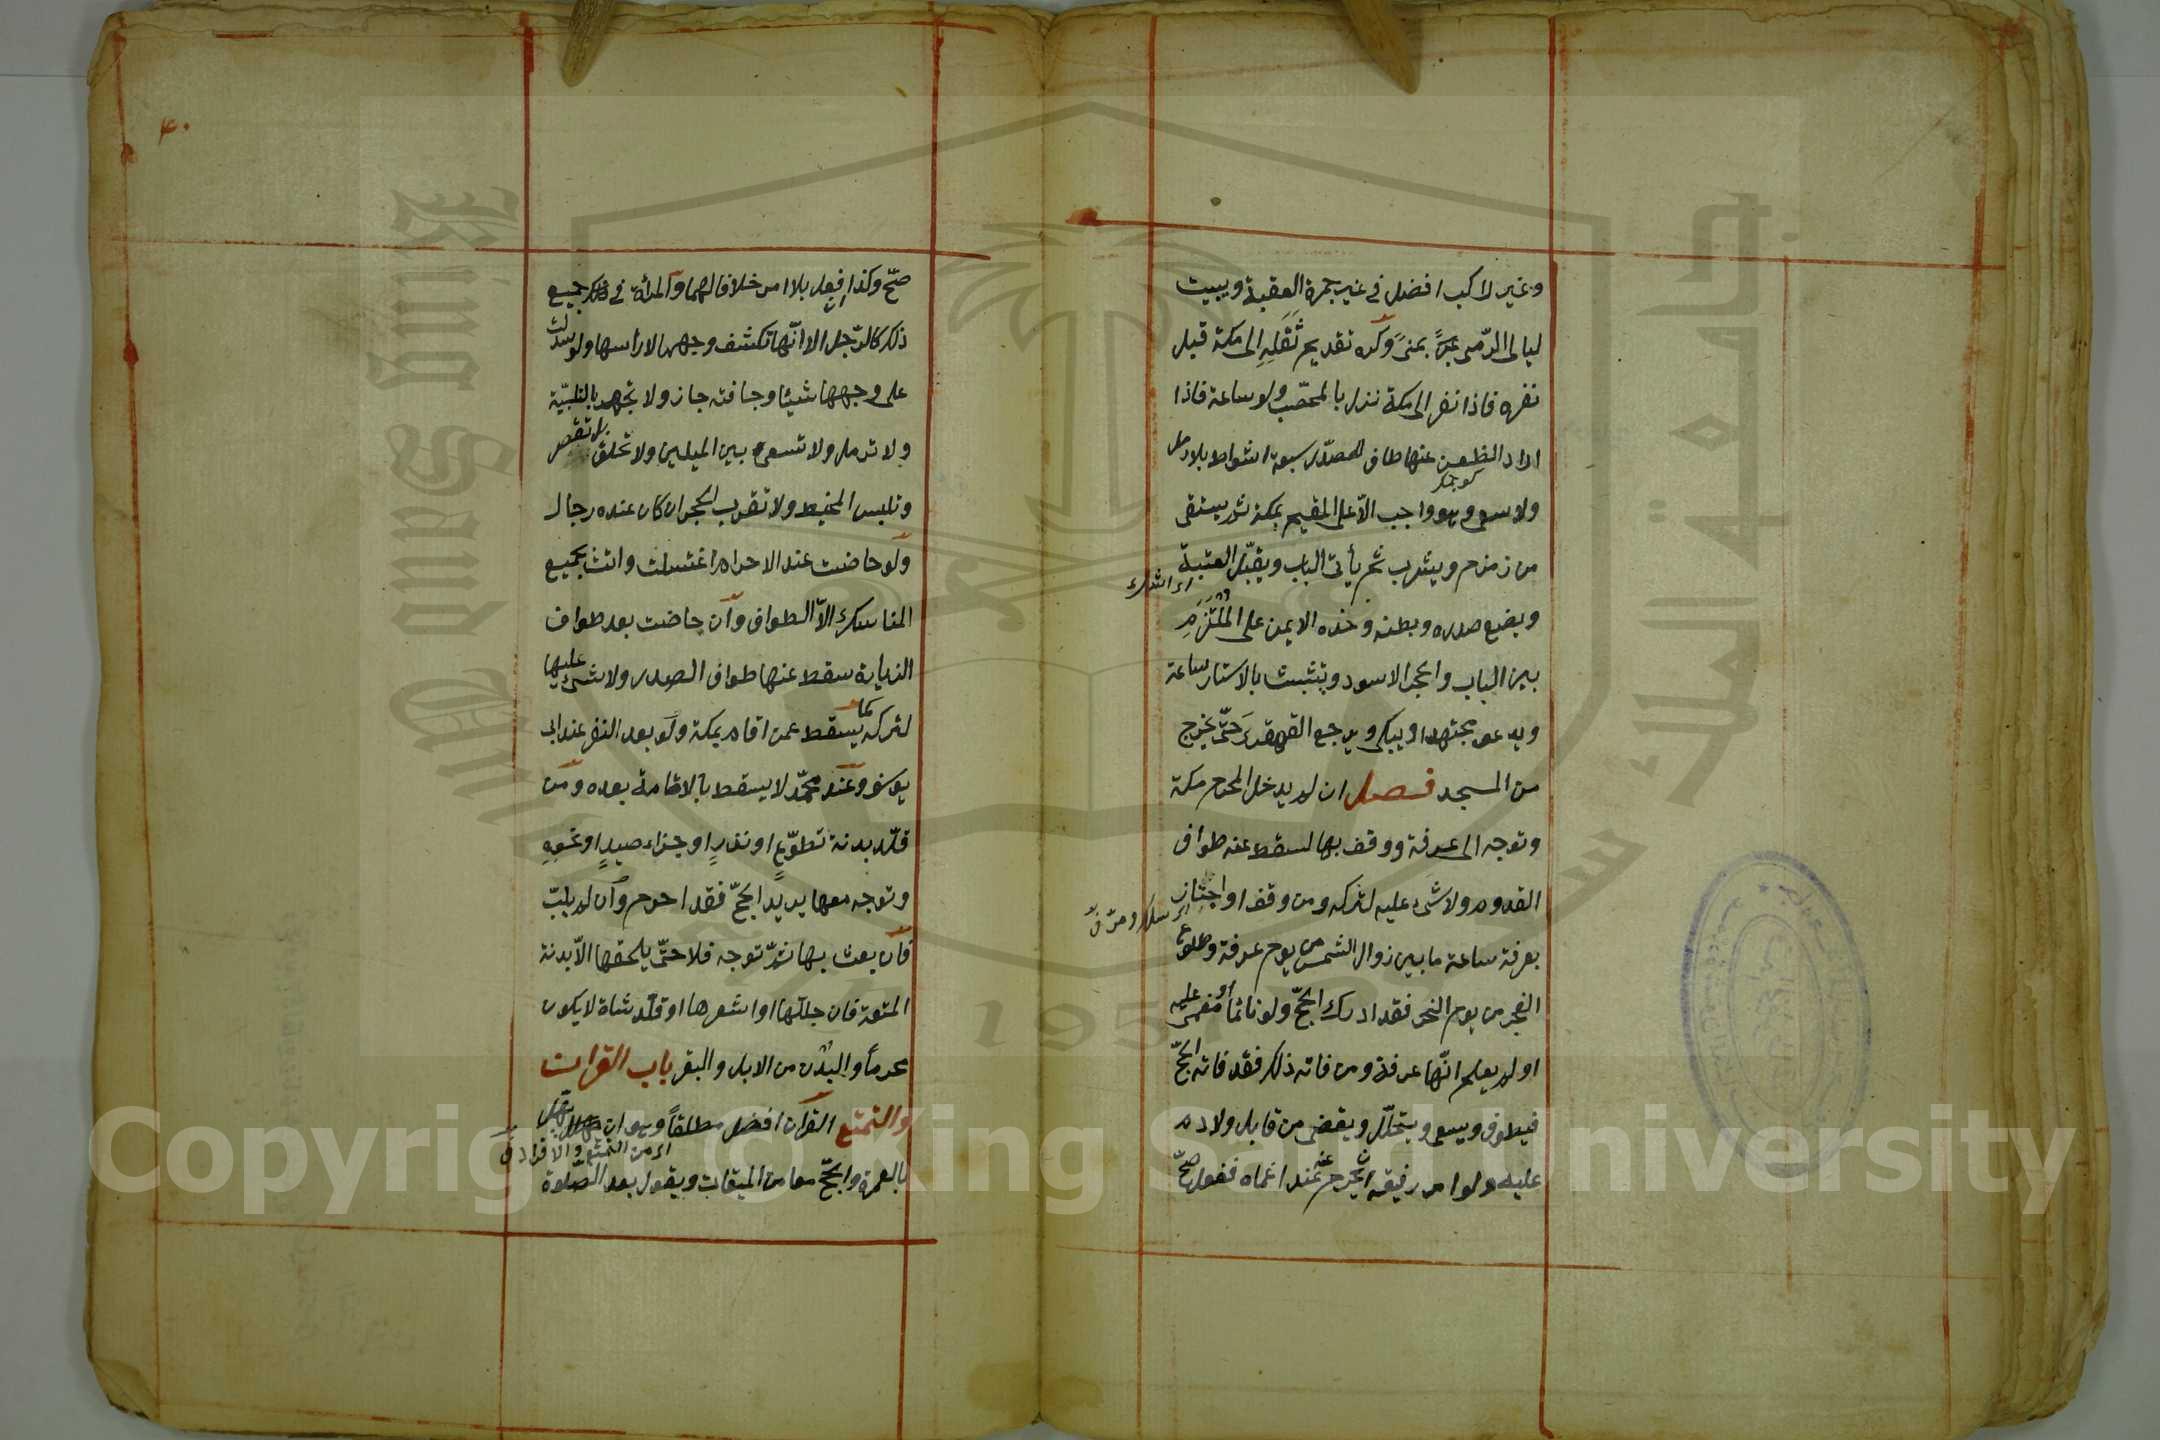 وغير راكب افضل في غير جمرة العقبة ويبيت
ليالي الرمي بمنىً وكره تقديم ثَقَلِهِ الى مكة قبل
نفره فاذا نفر الى مكة نزل بالمحصّب ولو ساعة فاذا
اراد الظعن عنها طاف للصدر سبعة اشواط بلا رمل
كوچمك
ولا سعي وهو واجب الّا على المقيم بمكة ثم يستقي
من زمزم ويشرب ثم يأتي الباب ويقبّل العتبة
ويضع صدره وبطنه وخده الايمن على المُلْتَزَمِ
بين الباب والحجر الاسود ويتشبث بالاستار ساعة
ويدعو مجتهدا ويبكي ويرجع القهقرَ حتّى يخرج
من المسجد فصل ان لم يدخل المحرم مكة
وتوجه الى عرفة ووقف بها سقط عنه طواف
القدوم ولا شيء عليه لتركه ومن وقف او اجتاز
بعرفة ساعة ما بين زوال الشمس من يوم عرفة وطلوع
الفجر من يوم النحر فقد ادرك الحجّ ولو نائماً او مغمىً عليه
او لم يعلم انّها عرفة ومن فاته ذلك فقد فاته الحجّ
فيطوف ويسعى ويتحلّل ويقضي من قابل ولا دم
عليه ولو امر رفيقه ان يحرم عنه عند اغمائه ففعل صحّ
٤٠
صحّ وكذا ان فعل بلا امر خلافا لهما والمرأة في جميع
ذلك كالرّجل الا انّها تكشف وجهها لا رأسها ولو سدلت
على وجهها شيئا وجافته جاز ولا تجهر بالتلبيّة
ولا ترمل ولا تسعى بين الميلين ولا تحلق بل تقصر
وتلبس المخيط ولا تقرب الحجر ان كان عنده رجال
ولو حاضت عند الاحرام اغتسلت واتت بجميع
المناسك الّا الطواف وان حاضت بعد طواف
الزيارة سقط عنها طواف الصدر ولا شيء عليها
لتركه كما يسقط عمن اقام بمكة ولو بعد النفر عند ابي
يوسف وعند محمّد لا يسقط بالاقامة بعده ومن
قلّد بدنة تطوّعٍ او نذرٍ او جزاء صيدٍ او نحوِهِ
وتوجه معها يريد الحجّ فقد احرم وان لم يلبّ
فان بعث بها ثمّ توجه فلا حتّى يلحقها الّا بدنة
المتعة فان جلّلها او اشعرها او قلّد شاة لا يكون
محرماً والبُدْن من الابل والبقر باب القران
والتمتع القران افضل مطلقاً وهو ان يهل
اي من التمتع والافراد
بالعمرة والحجّ معا من الميقات ويقول بعد الصّلوة
Copyright © King Saud University
1957